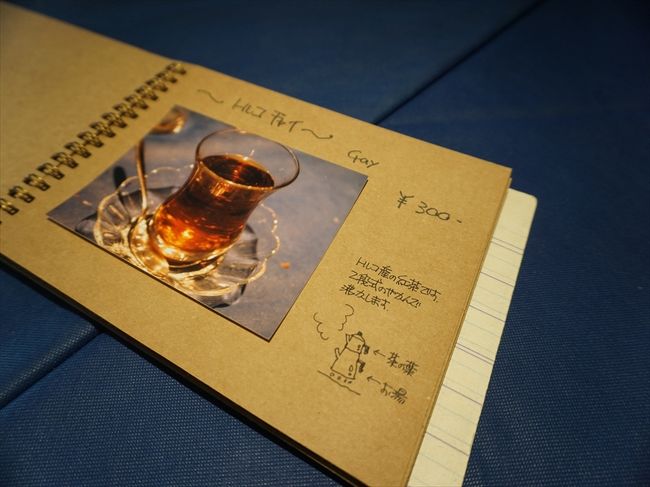 ～トルコチャイ～
Çay
￥300-
トルコ産の紅茶です。
2段式のやかんで
沸かします。
←茶の葉
←お湯